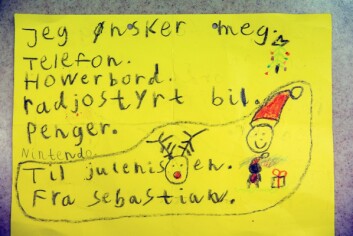 Jeg ønsker meg.
Telefon.
Howerbord.
radjostyrt bil.
Penger.
Nintendo
Til julenissen.
Fra sebastian.